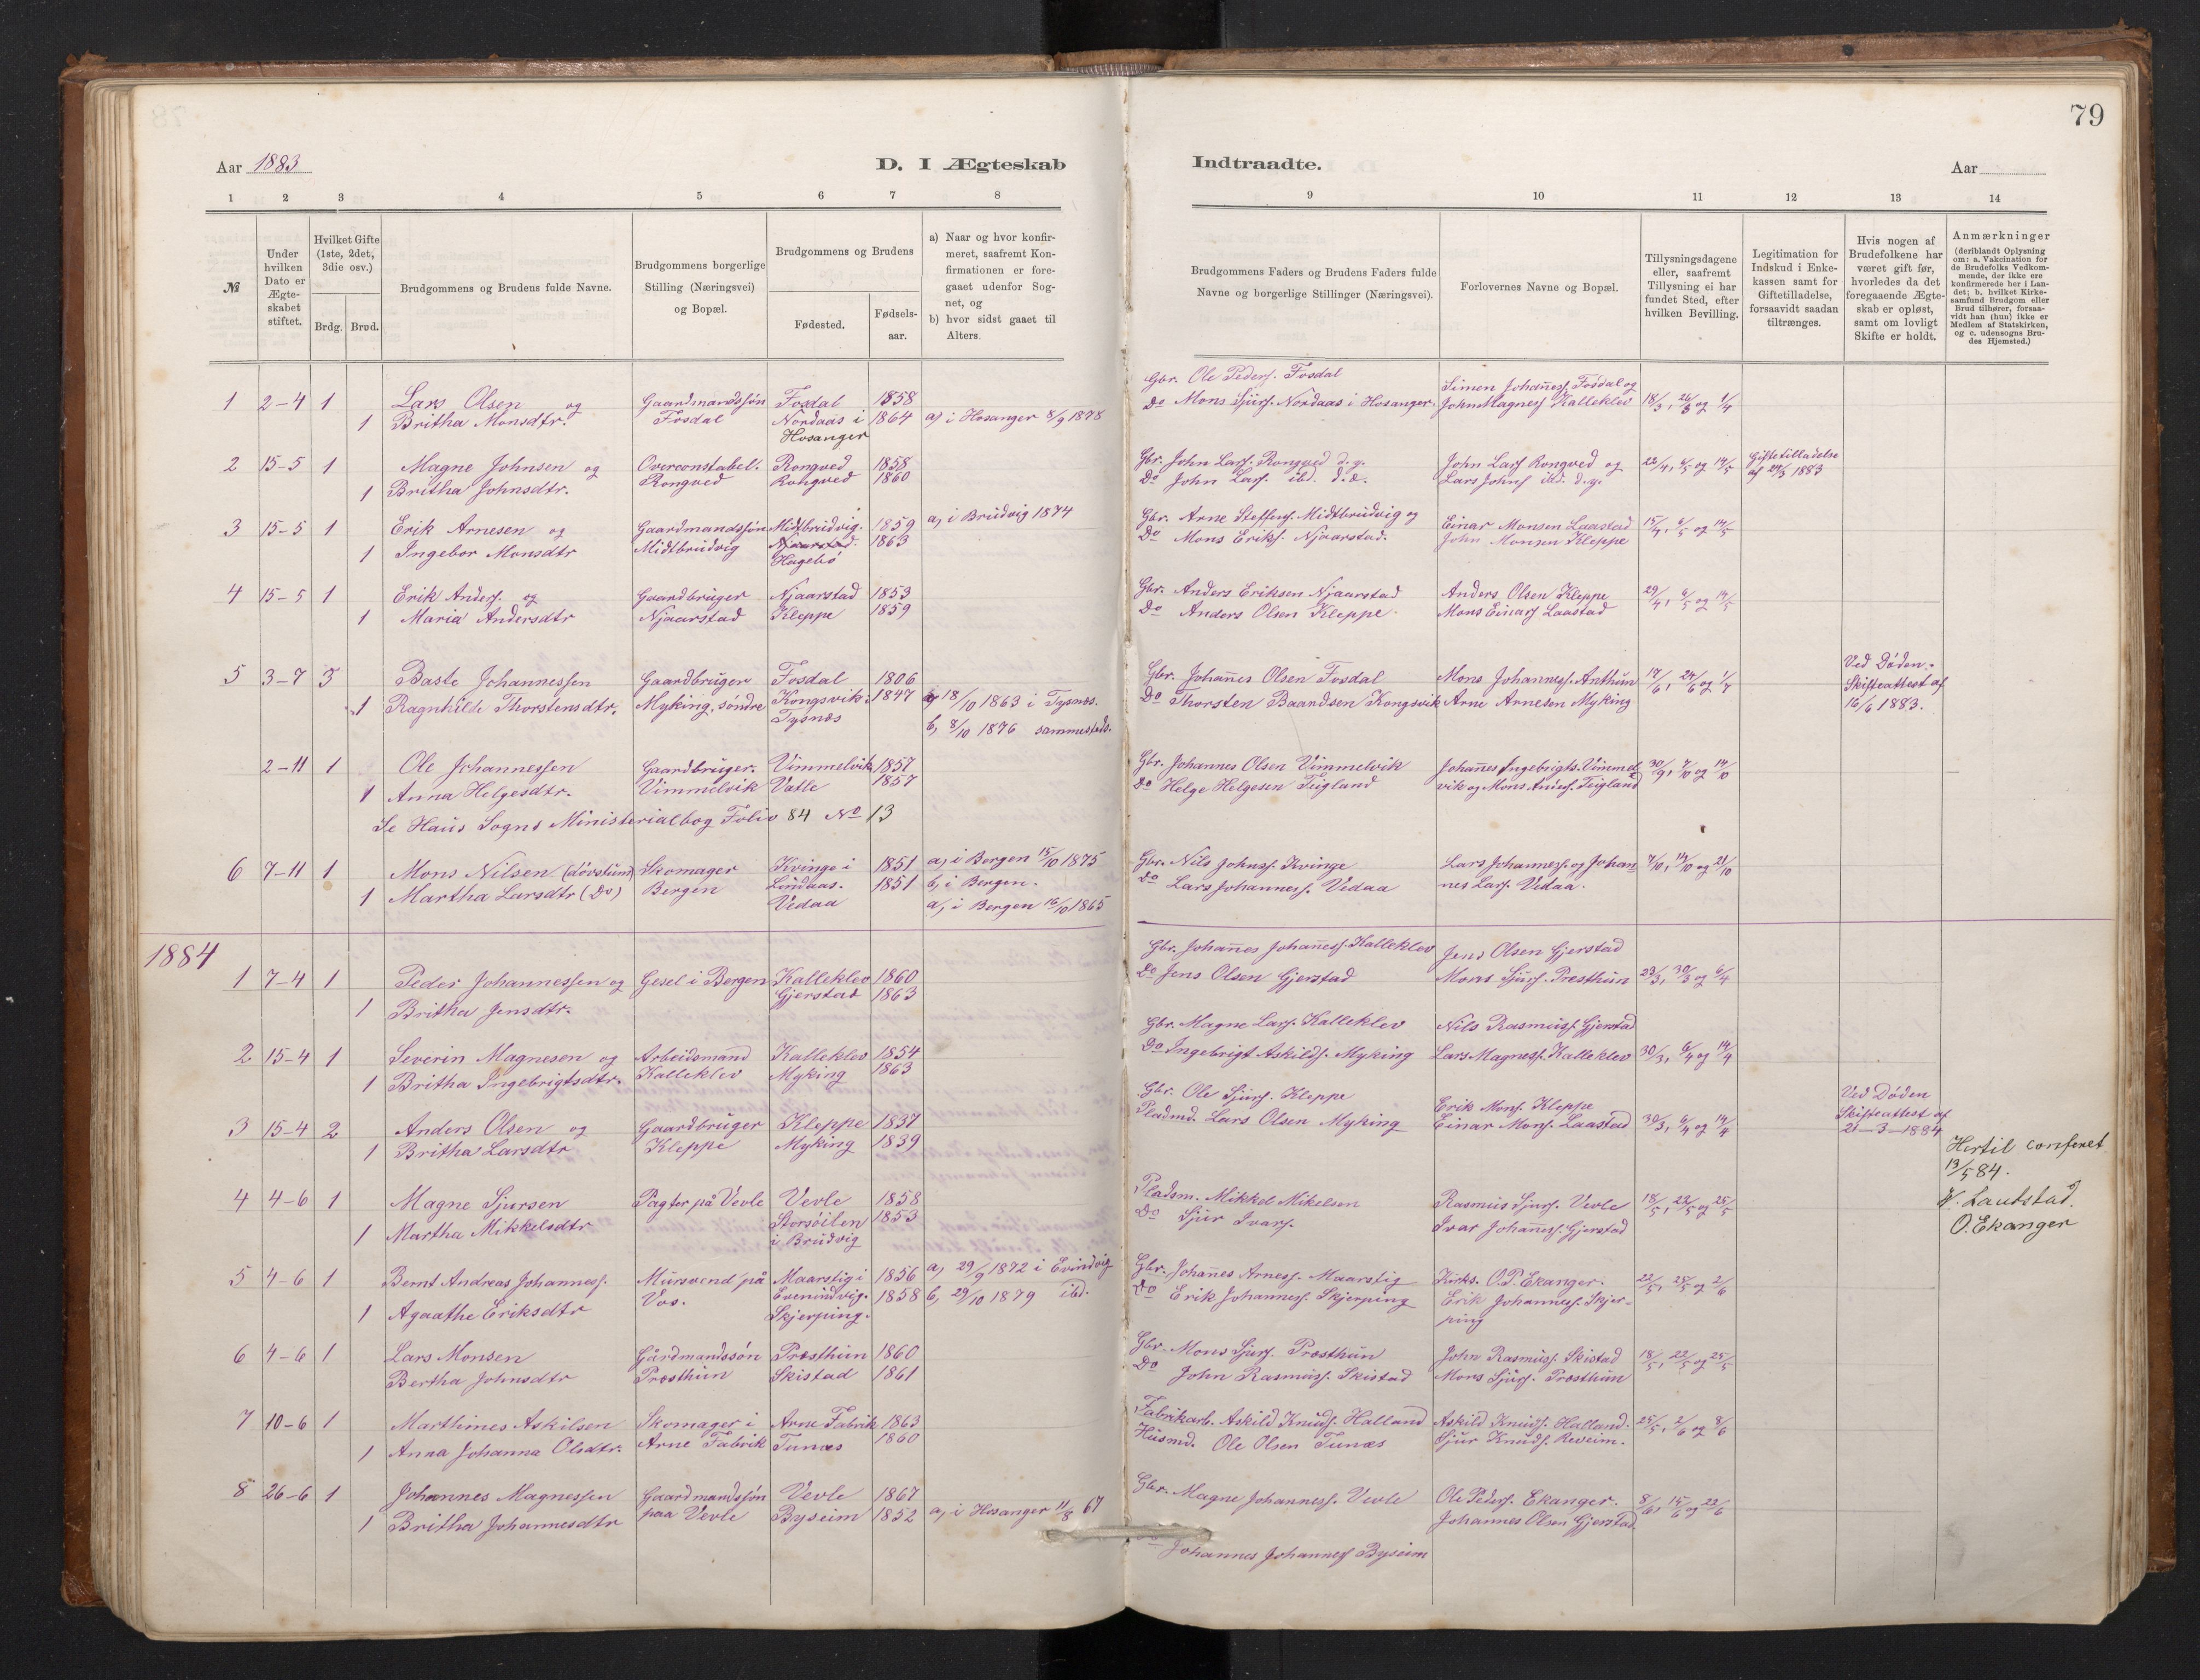 79
Aar 1883
D. I Ægteskab
Indtraadte.
Aar
1 2 3 4 5 6 7 8 9 10 11 12 13 14
№
Under hvilken Dato er Ægteskabet stiftet.
Hvilket Gifte (1ste, 2det, 3die osv.)
Brdg. Brud.
Brudgommens og Brudens fulde Navne.
Brudgommens borgerlige Stilling (Næringsvei) og Bopæl.
Brudgommens og Brudens
Fødested.
Fødselsaar.
a) Naar og hvor konfirmeret, saafremt Konfirmationen er foregaaet udenfor Sognet, og
b) hvor sidst gaaet til Alters.
Brudgommens Faders og Brudens Faders fulde Navne og borgerlige Stillinger (Næringsvei).
Forlovernes Navne og Bopæl.
Tillysningsdagene eller, saafremt Tillysning ei har fundet Sted, efter hvilken Bevilling.
Legitimation for Indskud i Enkekassen samt for Giftetilladelse, forsaavidt saadan tiltrænges.
Hvis nogen af Brudefolkene har været gift før, hvorledes da det foregaaende Ægteskab er opløst, samt om lovligt Skifte er holdt.
Anmærkninger
(deriblandt Oplysning om: a. Vakcination for de Brudefolks Vedkommende, der ikke ere konfirmerede her i Landet; b. hvilket Kirkesamfund Brudgom eller Brud tilhører, forsaavidt han (hun) ikke er Medlem af Statskirken, og c. udensogns Brudes Hjemsted.)
1 2-4 1 Lars Olsen og Gaardmandssøn Fosdal 1858 Gbr. Ole Peders. Fosdal Simen Johaness. Fosdal og
1 Britha Monsdtr. Fosdal Nordaas i Hosanger 1864 a) i Hosanger 8/9 1878 Do Mons Sjurs. Nordaas i Hosanger. John Magness Kalleklev 18/3, 26/3 og 1/4
2 15-5 1 Magne Johnsen og Overconstabel. Rongved 1858 Gbr. John Lars. Rongved d.y. John Lars Rongved og 22/4, 6/5 og 14/5 Giftetilladelse
1 Britha Johnsdtr. Rongved Rongved 1860 Do John Lars. ibd. d.æ. Lars Johns ibd. d.y. af 29/3 1883
3 15-5 1 Erik Arnesen og Gaardmandssøn Midtbrudvig. 1859 a, i Brudvig 1874 Gbr. Arne Steffens. Midtbrudvig og Einar Monsen Laastad 15/4, 6/5 og 14/5
1 Ingebor Monsdtr Midtbrudvig Njaarstad. Hagebø 1863 Do Mons Eriks. Njaarstad. John Monsen Kleppe
4 15-5 1 Erik Anders. og Gaardbruger Njaarstad 1853 Gbr. Anders Eriksen Njaarstad Anders Olsen Kleppe 29/4, 6/5 og 14/5
1 Maria Andersdtr Njaarstad Kleppe 1859 Do Anders Olsen Kleppe. Mons Einars Laastad
5 3-7 3 Baste Johannessen Gaardbruger Fosdal 1806 Gbr. Johanes Olsen Fosdal Mons Johanness. Anthun 17/6, 24/6 og 1/7 Ved Døden.
1 Ragnhilde Thorstensdtr. Myking, søndre Kongsvik i Tysnæs 1847 a, 18/10 1863 i Tysnæs. Do Thorsten Baardsen Kongsvik Arne Arnesen Myking Skifteattest af
b, 8/10 1876 sammesteds. 16/6 1883.
2-11 1 Ole Johannessen Gaardbruger. Vimmelvik 1857 Gbr. Johannes Olsen Vimmelvik Johanes Ingebrigts. Vimmel- 30/9, 7/10 og 14/10
1 Anna Helgesdtr. Vimmelvik Vatle 1857 Do Helge Helgesen Teigland vik og Mons Anders. Teigland
Se Haus Sogns Ministerialbog Folio 84 No 13
6 7-11 1 Mons Nilsen (døvstum) Skomager Kvinge i Lindaas. 1851 a, i Bergen 15/10 1875 Gbr. Nils Johnss. Kvinge Lars Johanness. og Johan- 7/10, 14/10 og 21/10
1 Martha Larsdtr (Do) Bergen Vedaa 1851 b, i Bergen. Do Lars Johanness. Vedaa nes Lars. Vedaa.
a, i Bergen 16/10 1865
1884
1 7-4 1 Peder Johannessen og Gesel i Bergen Kalleklev 1860 Gbr. Johanes Johaness. Kalleklev Jens Olsen Gjerstad
1 Britha Jensdtr. Gjerstad 1863 Do Jens Olsen Gjerstad Mons Sjurs. Præsthun 23/3, 30/3 og 6/4
2 15-4 1 Severin Magnesen og Arbeidsmand Kalleklev 1854 Gbr. Magne Lars. Kalleklev Nils Rasmuss. Gjerstad
1 Britha Ingebrigtsdtr. Kalleklev Myking 1863 Do Ingebrigt Askilds. Myking Lars Magness. Kalleklev 30/3, 6/4 og 14/4
3 15-4 2 Anders Olsen og Gaardbruger Kleppe 1837 Gbr. Ole Sjurs. Kleppe Erik Mons. Kleppe Ved Døden
1 Britha Larsdtr Kleppe Myking 1839 Pladmd. Lars Olsen Myking Einar Mons. Laastad 30/3, 6/4 og 14/4 Skifteattest af
21-3-1884
Hertil conferet
13/5 84.
O. Ekanger
4 4-6 1 Magne Sjursen Pagter på Vevle Vevle 1858 Pladsm. Mikkel Mikelsen Rasmus Sjurs. Vevle 18/5, 22/5 og 25/5
1 Martha Mikkelsdtr Storsøilen i Brudvig 1853 Do Sjur Ivars. Ivar Johaness. Gjerstad
5 4-6 1 Bernt Andreas Johanness. Mursvend på Maarstig i Evenindvig. 1856 a, 29/9 1872 i Evindvig Gbr. Johanes Arness. Maarstig Kirks. O.P. Ekanger. 22/5, 25/5 og 2/6
1 Agaathe Eriksdtr Vos. Skjerping. 1858 b, 29/10 1879 ibd. Do Erik Johanness. Skjerping Erik Johanness. Skjerping
6 4-6 1 Lars Monsen Gårdmandssøn Præsthun 1860 Gbr. Mons Sjurs. Præsthun John Rasmuss. Skistad 18/5, 22/5 og 25/5
Bertha Johnsdtr Præsthun Skistad 1861 Do John Rasmuss. Skistad Mons Sjurs. Præsthun
7 10-6 1 Marthines Askilsen Skomager i Arne Fabrik 1863 Fabrikarb. Askild Knuds. Halland Askild Knuds. Halland. 25/5, 2/6 og 8/6
1 Anna Johanna Olsdtr. Arne Fabrik Tunæs 1860 Husmd. Ole Olsen Tunæs Sjur Knuds. Reveim.
8 26-6 1 Johannes Magnessen Gaardmandssøn Vevle 1867 Gbr. Magne Johanness. Vevle Ole Peders. Ekanger. 8/6, 15/6 og 22/6
1 Britha Johannesdtr paa Vevle Byseim 1852 a, i Hosanger 11/8 67 Johannes Olsen Gjerstad
Do Johannes Johanness Byseim